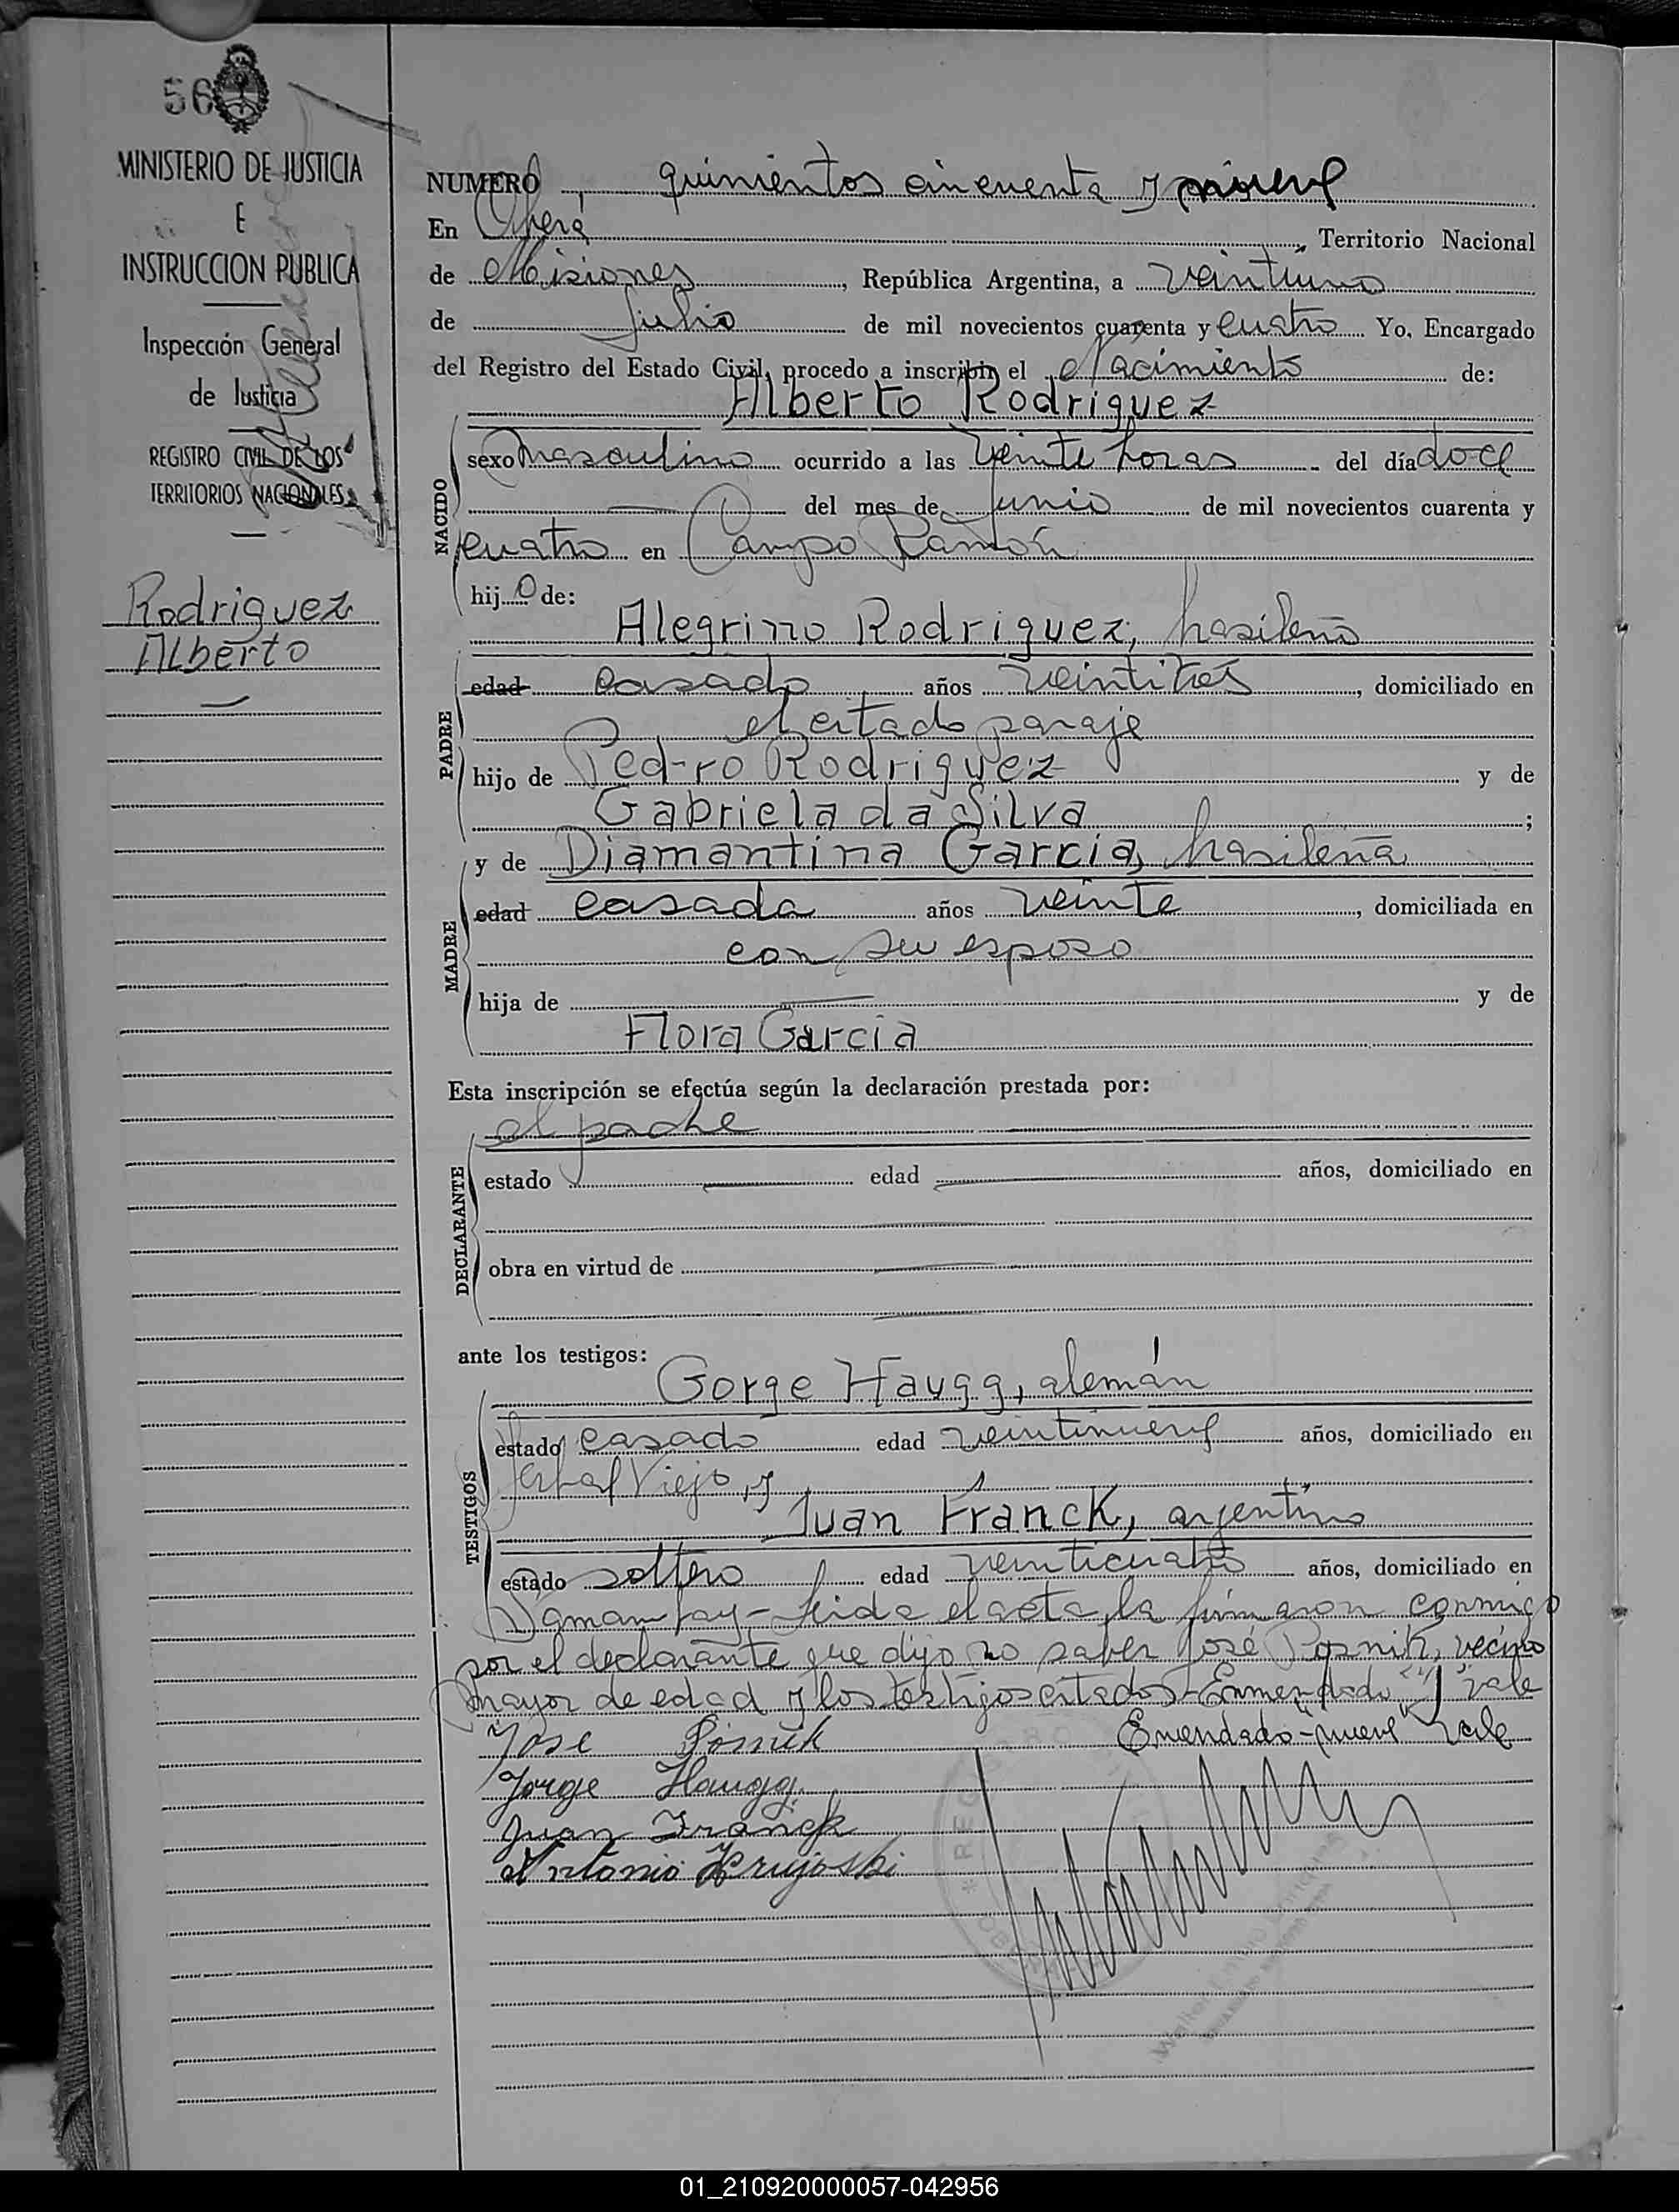 56
MINISTERIO DE JUSTICIA
E
INSTRUCCION PUBLICA
Inspección General
de Justicia
REGISTRO CIVIL DE LOS
TERRITORIOS NACIONALES
Rodriguez
Alberto
NUMERO quinientos cincuenta y nueve
En Oberá, Territorio Nacional
de Misiones, República Argentina, a veintiuno
de Julio de mil novecientos cuarenta y cuatro Yo, Encargado
del Registro del Estado Civil, procedo a inscribir el Nacimiento de:
Alberto Rodriguez
NACIDO
sexo masculino ocurrido a las veinte horas del día doce
del mes de Junio de mil novecientos cuarenta y
cuatro en Campo Ramón
hijo de:
Alegrino Rodriguez, brasileño
PADRE
edad casado años veintitres, domiciliado en
el citado paraje
hijo de Pedro Rodriguez y de
Gabriela da Silva;
y de Diamantina Garcia, brasileña
MADRE
edad casada años veinte, domiciliada en
con su esposo
hija de y de
Flora Garcia
Esta inscripción se efectúa según la declaración prestada por:
el padre
DECLARANTE
estado edad años, domiciliado en
obra en virtud de
ante los testigos:
Gorge Haugg, alemán
TESTIGOS
estado casado edad veintinueve años, domiciliado en
Yerbal Viejo, y
Juan Franck, argentino
estado soltero edad veinticuatro años, domiciliado en
Leida el acta, la firmaron conmigo
por el declarante que dijo no saber José vecino
mayor de edad y los testigos citados - Enmendado "J" vale
Jose Enmendado - "nueve" Vale
Jorge Haugg
Juan Franck
Antonio
REGISTRO
01_210920000057-042956